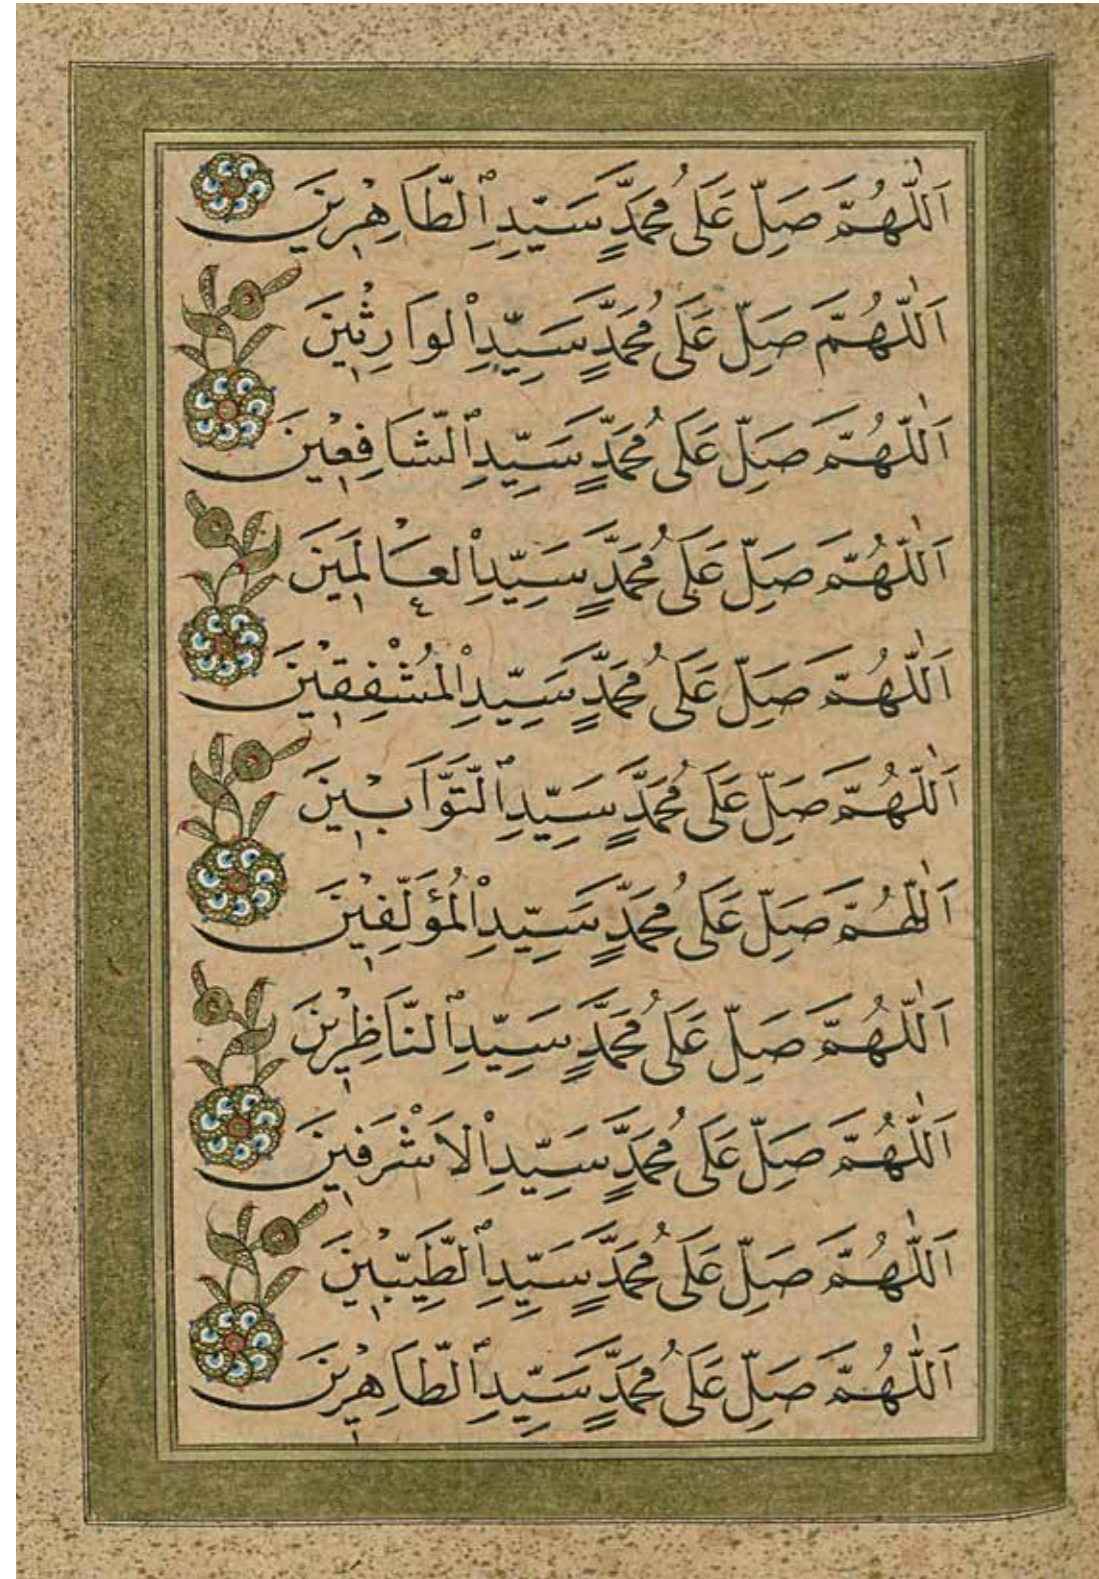 اَللّٰهُمَّ صَلِّ عَلَى مُحَمَّدٍ سَيِّدِ الطَّاهِرِينَ
اَللّٰهُمَّ صَلِّ عَلَى مُحَمَّدٍ سَيِّدِ الْوَارِثِينَ
اَللّٰهُمَّ صَلِّ عَلَى مُحَمَّدٍ سَيِّدِ الشَّافِعِينَ
اَللّٰهُمَّ صَلِّ عَلَى مُحَمَّدٍ سَيِّدِ الْعَالَمِينَ
اَللّٰهُمَّ صَلِّ عَلَى مُحَمَّدٍ سَيِّدِ الْمُشْفِقِينَ
اَللّٰهُمَّ صَلِّ عَلَى مُحَمَّدٍ سَيِّدِ التَّوَّابِينَ
اَللّٰهُمَّ صَلِّ عَلَى مُحَمَّدٍ سَيِّدِ الْمُؤَلِّفِينَ
اَللّٰهُمَّ صَلِّ عَلَى مُحَمَّدٍ سَيِّدِ النَّاظِرِينَ
اَللّٰهُمَّ صَلِّ عَلَى مُحَمَّدٍ سَيِّدِ الْاَشْرَفِينَ
اَللّٰهُمَّ صَلِّ عَلَى مُحَمَّدٍ سَيِّدِ الطَّيِّبِينَ
اَللّٰهُمَّ صَلِّ عَلَى مُحَمَّدٍ سَيِّدِ الطَّاهِرِينَ